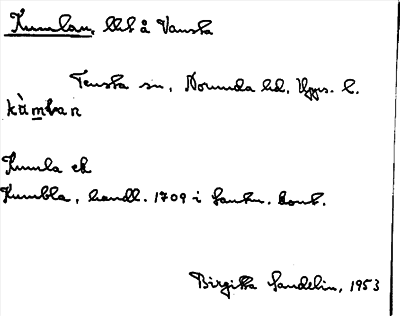 Kumlan, bht å Vansta
Tensta sn, Norunda hd, Upps. l.
kùmban
Kumla ek
Kumbla, handl. 1709 i Lantm. kont.
Birgitta Sandelin, 1953